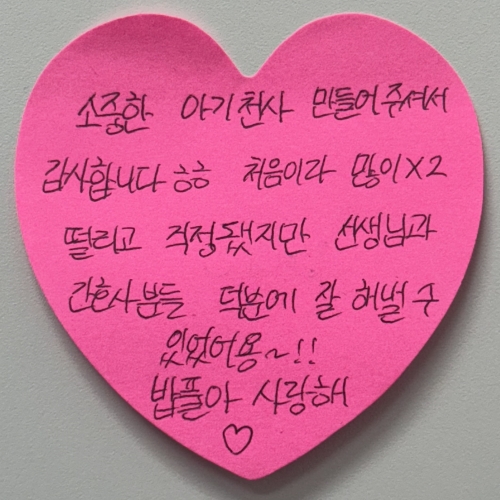 소중한 아기천사 만들어주셔서
감사합니다 ㅎㅎ 처음이라 많이×2
떨리고 걱정됐지만 선생님과
간호사분들 덕분에 잘 해낼 수
있었어용~!!
밥풀아 사랑해
♡